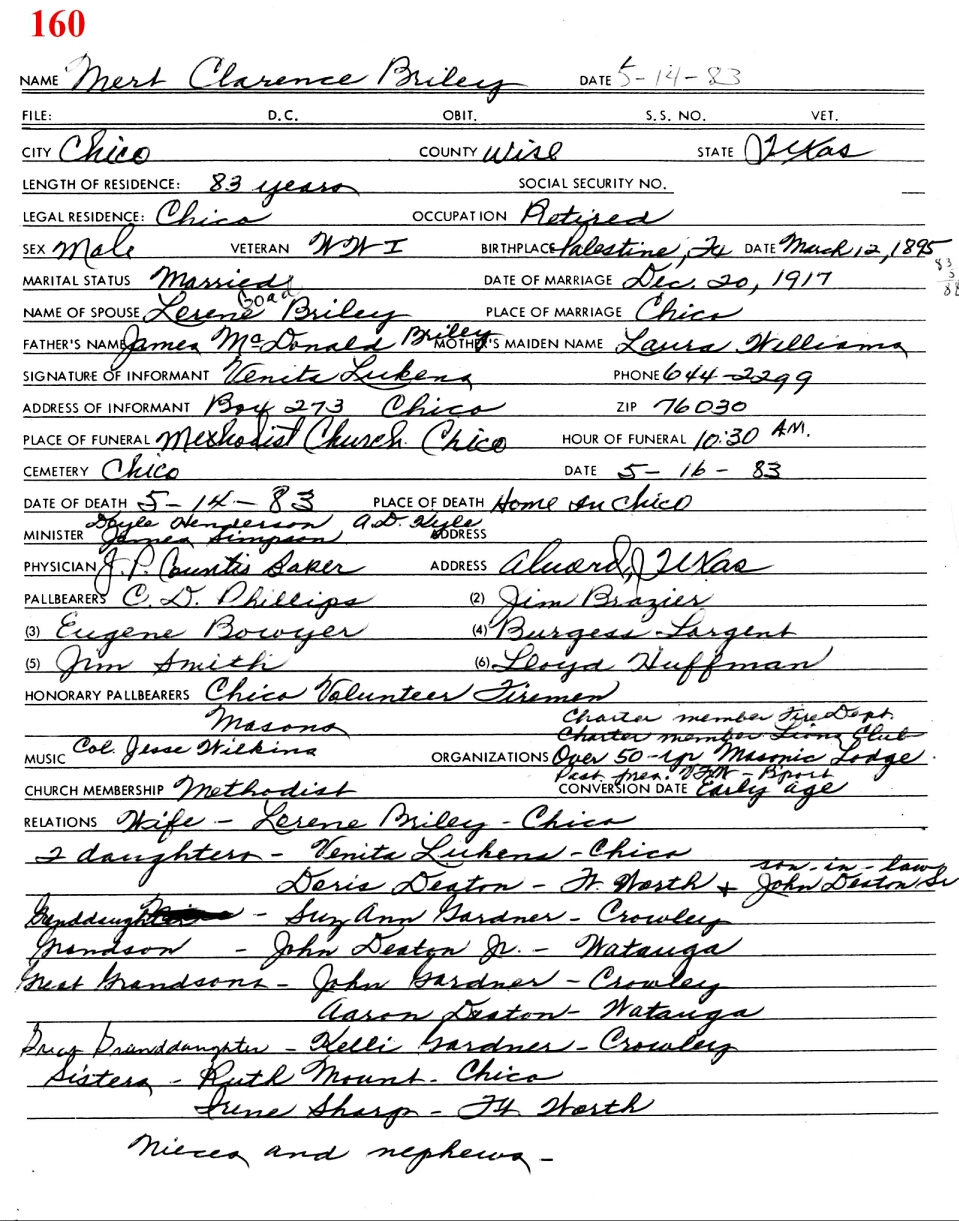 160
NAME Mert Clarence Briley DATE 5-14-83
FILE: D.C. OBIT. S.S. NO. VET.
CITY Chico COUNTY Wise STATE Texas
LENGTH OF RESIDENCE: 83 years SOCIAL SECURITY NO.
LEGAL RESIDENCE: Chico OCCUPATION Retired
SEX Male VETERAN WW I BIRTHPLACE Palestine, Tx DATE March 12, 1895
83
5
88
MARITAL STATUS Married DATE OF MARRIAGE Dec. 20, 1917
Goad
NAME OF SPOUSE Lerene Briley PLACE OF MARRIAGE Chico
FATHER'S NAME James McDonald Briley MOTHER'S MAIDEN NAME Laura Williams
SIGNATURE OF INFORMANT Venita Lukens PHONE 644-2299
ADDRESS OF INFORMANT Box 273 Chico ZIP 76030
PLACE OF FUNERAL Methodist Church Chico HOUR OF FUNERAL 10:30 A.M.
CEMETERY Chico DATE 5-16-83
DATE OF DEATH 5-14-83 PLACE OF DEATH Home in Chico
Doyle Henderson, A.D. Kyle
MINISTER James Simpson ADDRESS
PHYSICIAN J.P. Countis Baker ADDRESS Alvord, Texas
PALLBEARERS C. D. Phillips (2) Jim Brazier
(3) Eugene Bowyer (4) Burgess Largent
(5) Jim Smith (6) Lloyd Huffman
HONORARY PALLBEARERS Chico Volunteer Firemen
Masons Charter member Fire Dept.
Charter member Lions Club
MUSIC Col. Jesse Wilkins ORGANIZATIONS Over 50-yr Masonic Lodge.
Past pres. VFW - Bport
CHURCH MEMBERSHIP Methodist CONVERSION DATE Early age
RELATIONS Wife - Lerene Briley - Chico
2 daughters - Venita Lukens - Chico
son-in-law
Doris Deaton - Ft. Worth + John Deaton Sr
Granddaughter - Suz Ann Gardner - Crowley
Grandson - John Deaton Jr. - Watauga
Great Grandsons - John Gardner - Crowley
Aaron Deaton - Watauga
Great Granddaughter - Kelli Gardner - Crowley
Sisters - Ruth Mount - Chico
Irene Sharp - Ft Worth
Nieces and nephews -